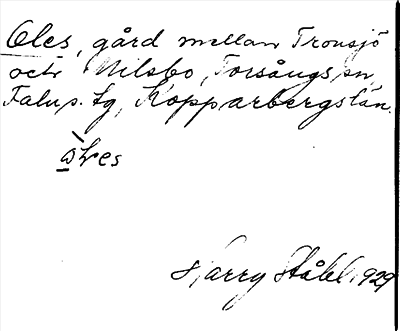 Oles, gård mellan Tronsjö
och Milsbo, Torsångs sn,
Falu s. lg, Kopparbergs län.
Harry Ståhl 1929